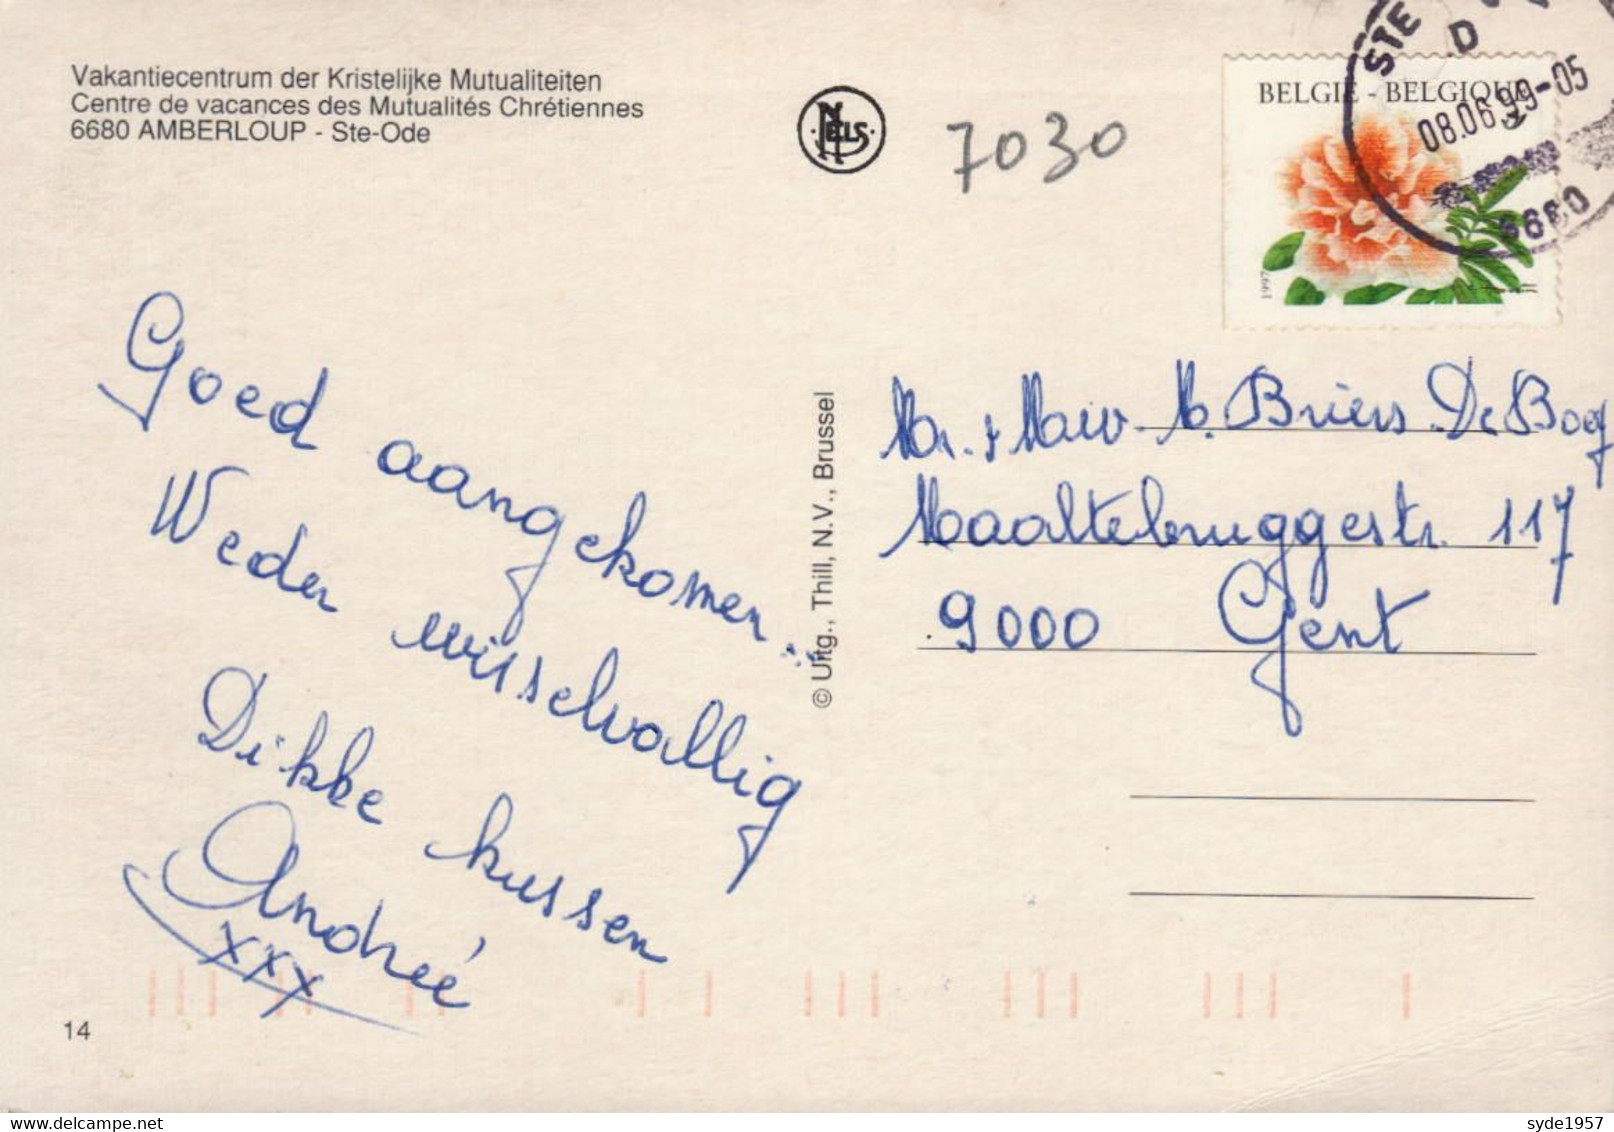 Vakantiecentrum der Kristelijke Mutualiteiten
Centre de vacances des Mutualités Chrétiennes
6680 AMBERLOUP - Ste-Ode
NELS
7030
BELGIË - BELGIQUE
1997
STE
D
08.06.99-05
6680
Goed aangekomen...
Weder wisselvallig
Dikke kussen
Andreé
xxx
© Uitg., Thill, N.V., Brussel
Mr. & Mevr. M. Briers De Booy
Maaltebruggestr. 117
9000 Gent
14
delcampe.net
syde1957